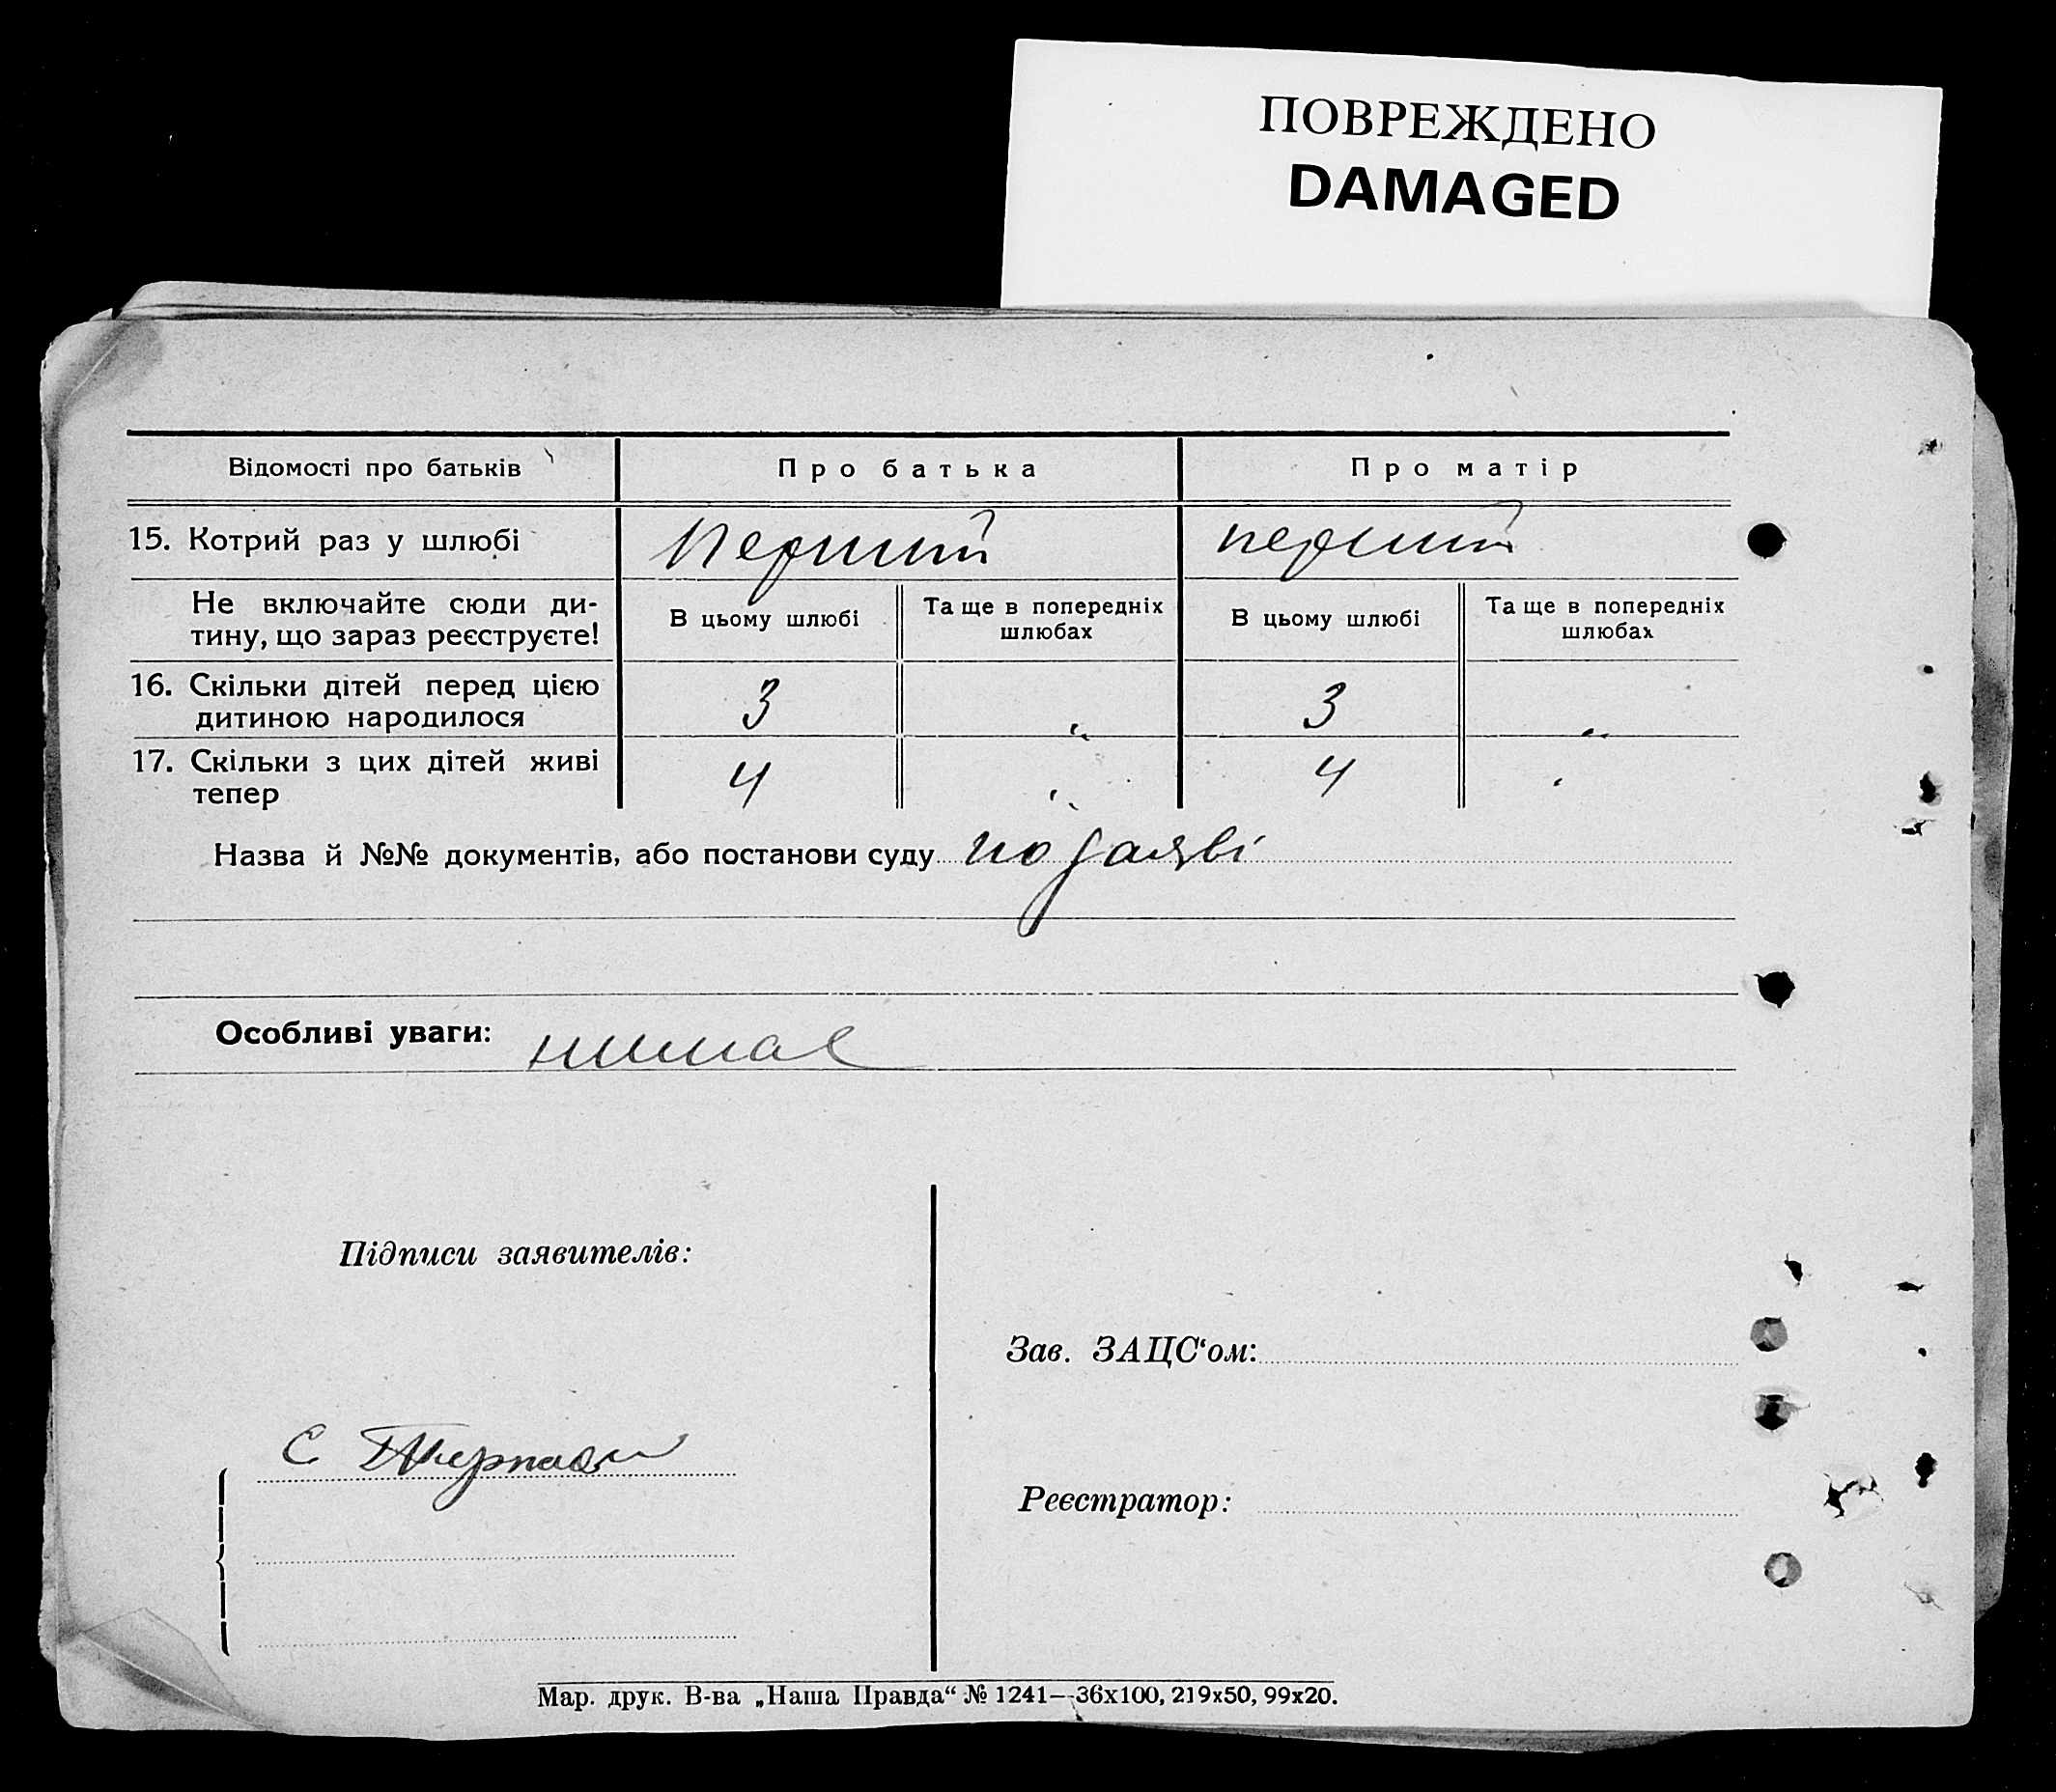 ПОВРЕЖДЕНО
DAMAGED
Відомості про батьків
Про батька
Про матір
15. Котрий раз у шлюбі
перший
перший
Не включайте сюди ди-
тину, що зараз реєструєте!
В цьому шлюбі
Та ще в попередніх
шлюбах
В цьому шлюбі
Та ще в попередніх
шлюбах
16. Скільки дітей перед цією
дитиною народилося
3
"
3
"
17. Скільки з цих дітей живі
тепер
4
"
4
Назва й №№ документів, або постанови суду по заяві
Особливі уваги: нимає
Підписи заявителів:
Зав. ЗАЦС‘ом:
С
Реєстратор:
Мар. друк. В-ва „Наша Правда“ № 1241—36х100, 219х50, 99х20.